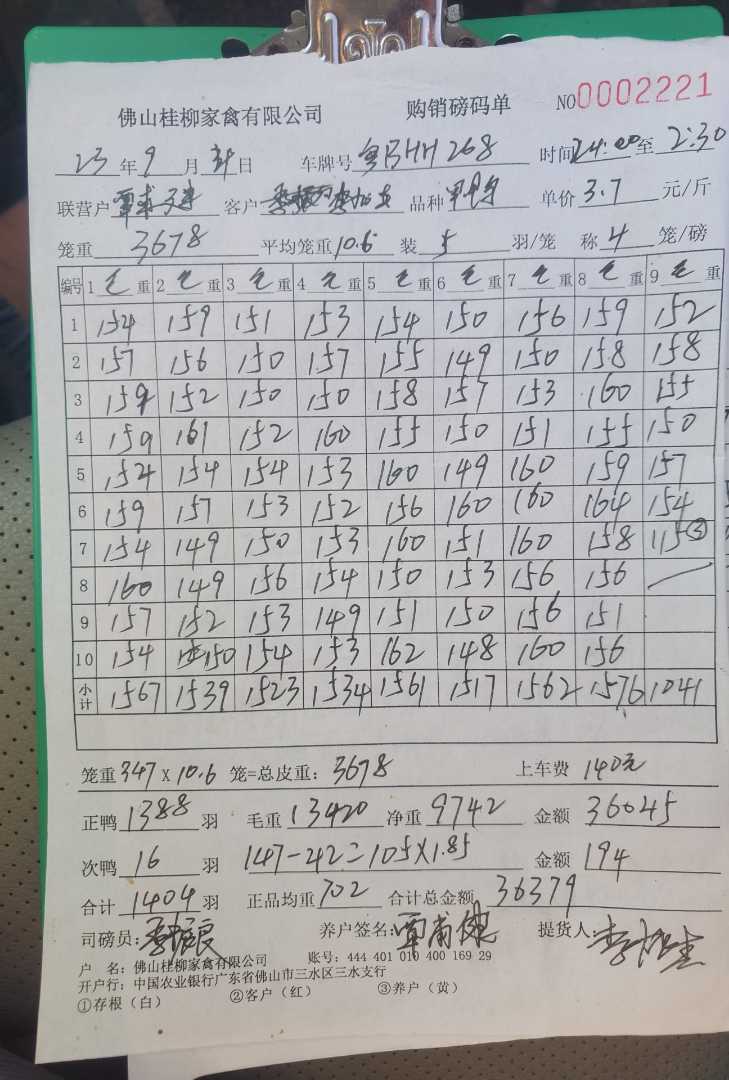 佛山桂柳家禽有限公司 购销磅码单 NO0002221
23年9月 日 车牌号 HH268 时间24:00至2:30
联营户 客户 品种 单价3.7元/斤
笼重3678 平均笼重10.6 装5羽/笼 称4笼/磅
编号 1毛重 2毛重 3毛重 4毛重 5毛重 6毛重 7毛重 8毛重 9毛重
1 154 159 151 153 154 150 156 159 152
2 157 156 150 157 155 149 150 158 158
3 159 152 150 150 158 157 153 160 155
4 159 161 152 160 155 150 151 155 150
5 152 154 154 153 160 149 160 159 157
6 159 157 153 152 156 160 160 164 154
7 154 149 150 153 160 151 160 158 115③
8 160 149 156 154 150 153 156 156
9 157 152 153 149 151 150 156 151
10 154 150 154 153 162 148 160 156
小计 1567 1539 1523 1534 1561 1517 1562 1576 1041
笼重347×10.6笼=总皮重:3678 上车费140元
正鸭1388羽 毛重13420 净重9742 金额36045
次鸭16羽 147-42=105×1.85 金额194
合计1404羽 正品均重702 合计总金额36379
司磅员: 养户签名:覃甫健 提货人:
户 名:佛山桂柳家禽有限公司 账号:444 401 010 400 169 29
开户行:中国农业银行广东省佛山市三水区三水支行
①存根(白) ②客户(红) ③养户(黄)